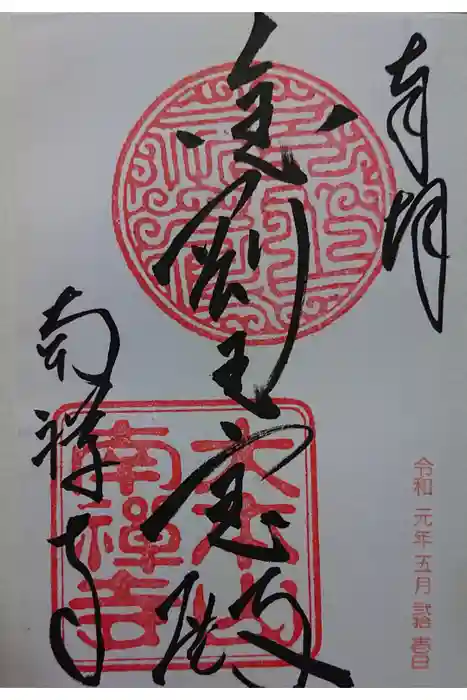 奉拝
金剛王宝殿
南禅寺
大本山
南禪寺
令和 元年五月 弐拾 壱日